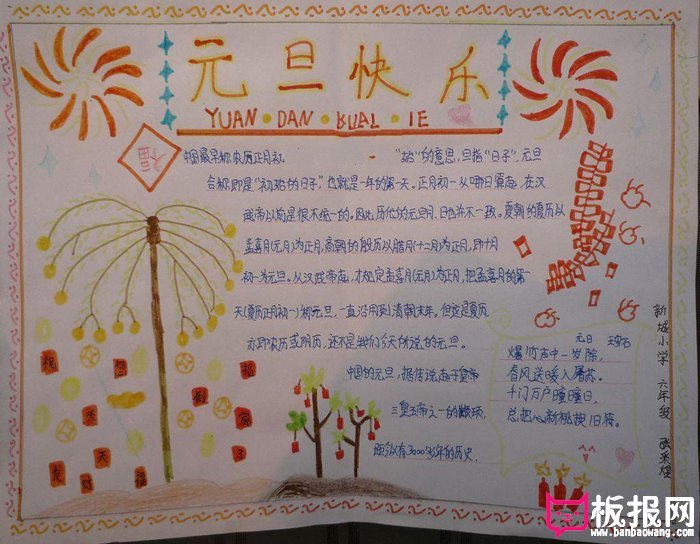 元旦快乐
YUAN·DAN·KUAL·IE
福
中国最早称农历正月初 "始"的意思,旦指"日子",元旦
合称即是"初始的日子",也就是一年的第一天。正月初一从哪日算起,在汉
武帝以前是很不统一的。因此,历代的元旦月、日也并不一致。夏朝的夏历以
孟喜月(元月)为正月,商朝的殷历以腊月(十二月)为正月,
初一为元旦。从汉武帝起,才规定孟喜月(元月)为正月,把孟喜月的第一
天(夏历正月初一)称元旦,一直沿用到清朝末年。但这是夏历,
亦即农历或阴历,还不是我们今天所说的元旦。
中国的元旦,据传说起于皇帝
三皇五帝之一的颛顼,
距今有3000多年的历史。
元日 王安石
爆竹声中一岁除,
春风送暖入屠苏。
千门万户曈曈日,
总把心新桃换旧符。
新城小学 六年级
祝 您 福
秀 倒 家
发 天 福 了
板报网
www.banbaowang.com